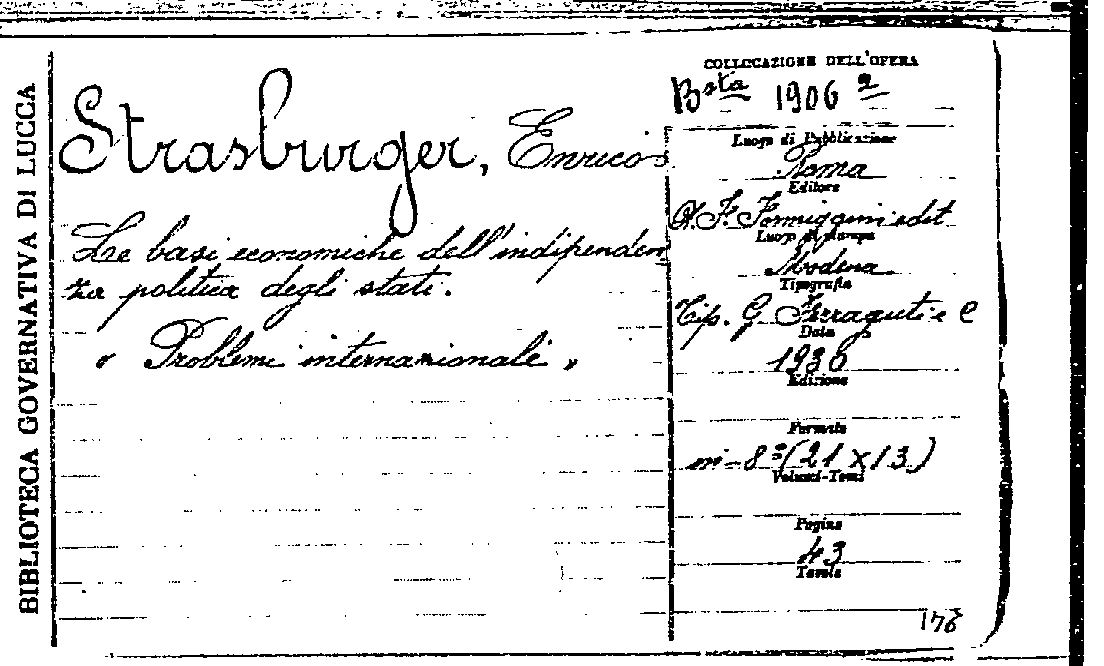 BIBLIOTECA GOVERNATIVA DI LUCCA
Strasburger, Enrico
Le basi economiche dell'indipenden
za politica degli stati.
" Problemi internazionali "
COLLOCAZIONE DELL'OPERA
Bsta 1906 a
Luogo di Pubblicazione
Roma
Editore
A. F. Formiggini edit
Luogo di stampa
Modena
Tipografia
Tip. G Ferraguti e C
Data
1936
Edizione
Formato
in-8° (21 x 13)
Volumi-Tomi
Pagine
43
Tavole